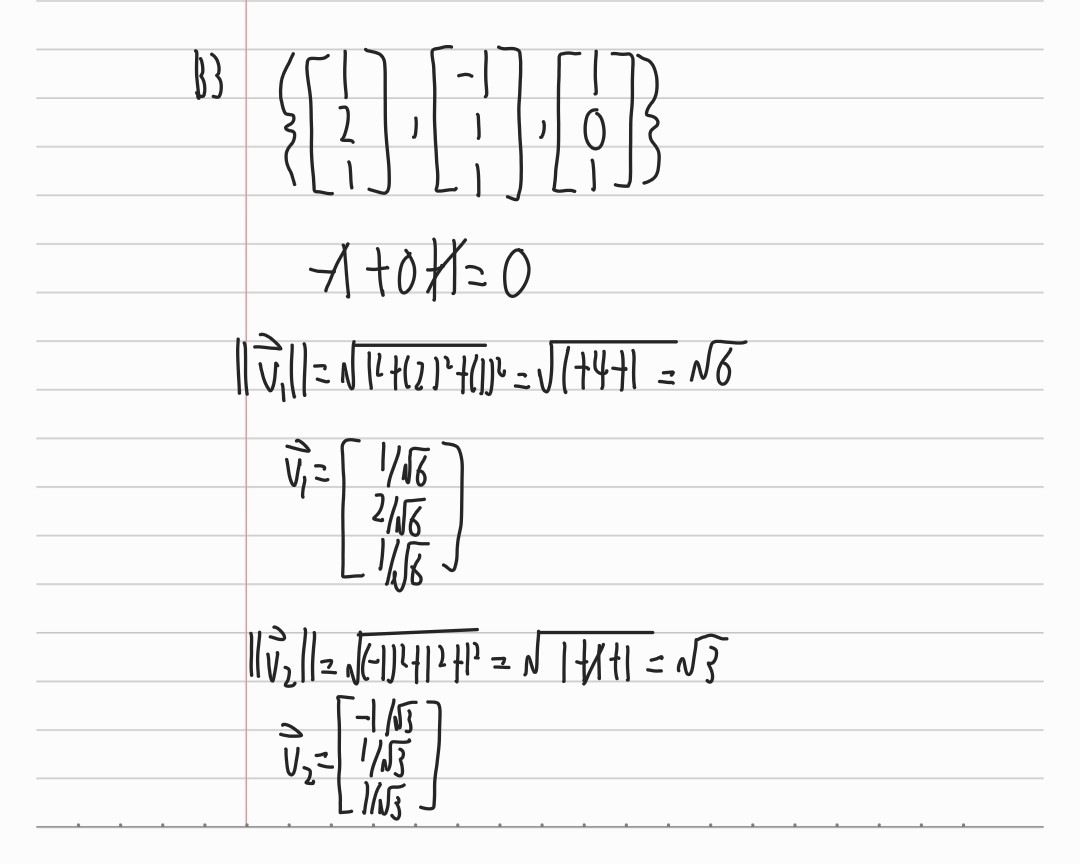 B) {[1 2 1], [-1 1 1], [1 0 1]}
-1 + 0 + 1 = 0
||v⃗₁|| = √(1²+(2)²+(1))² = √(1+4+1) = √6
v⃗₁ = [1/√6
2/√6
1/√6]
||v⃗₂|| = √((-1)²+1²+1²) = √(1+1+1) = √3
v⃗₂ = [-1/√3
1/√3
1/√3]